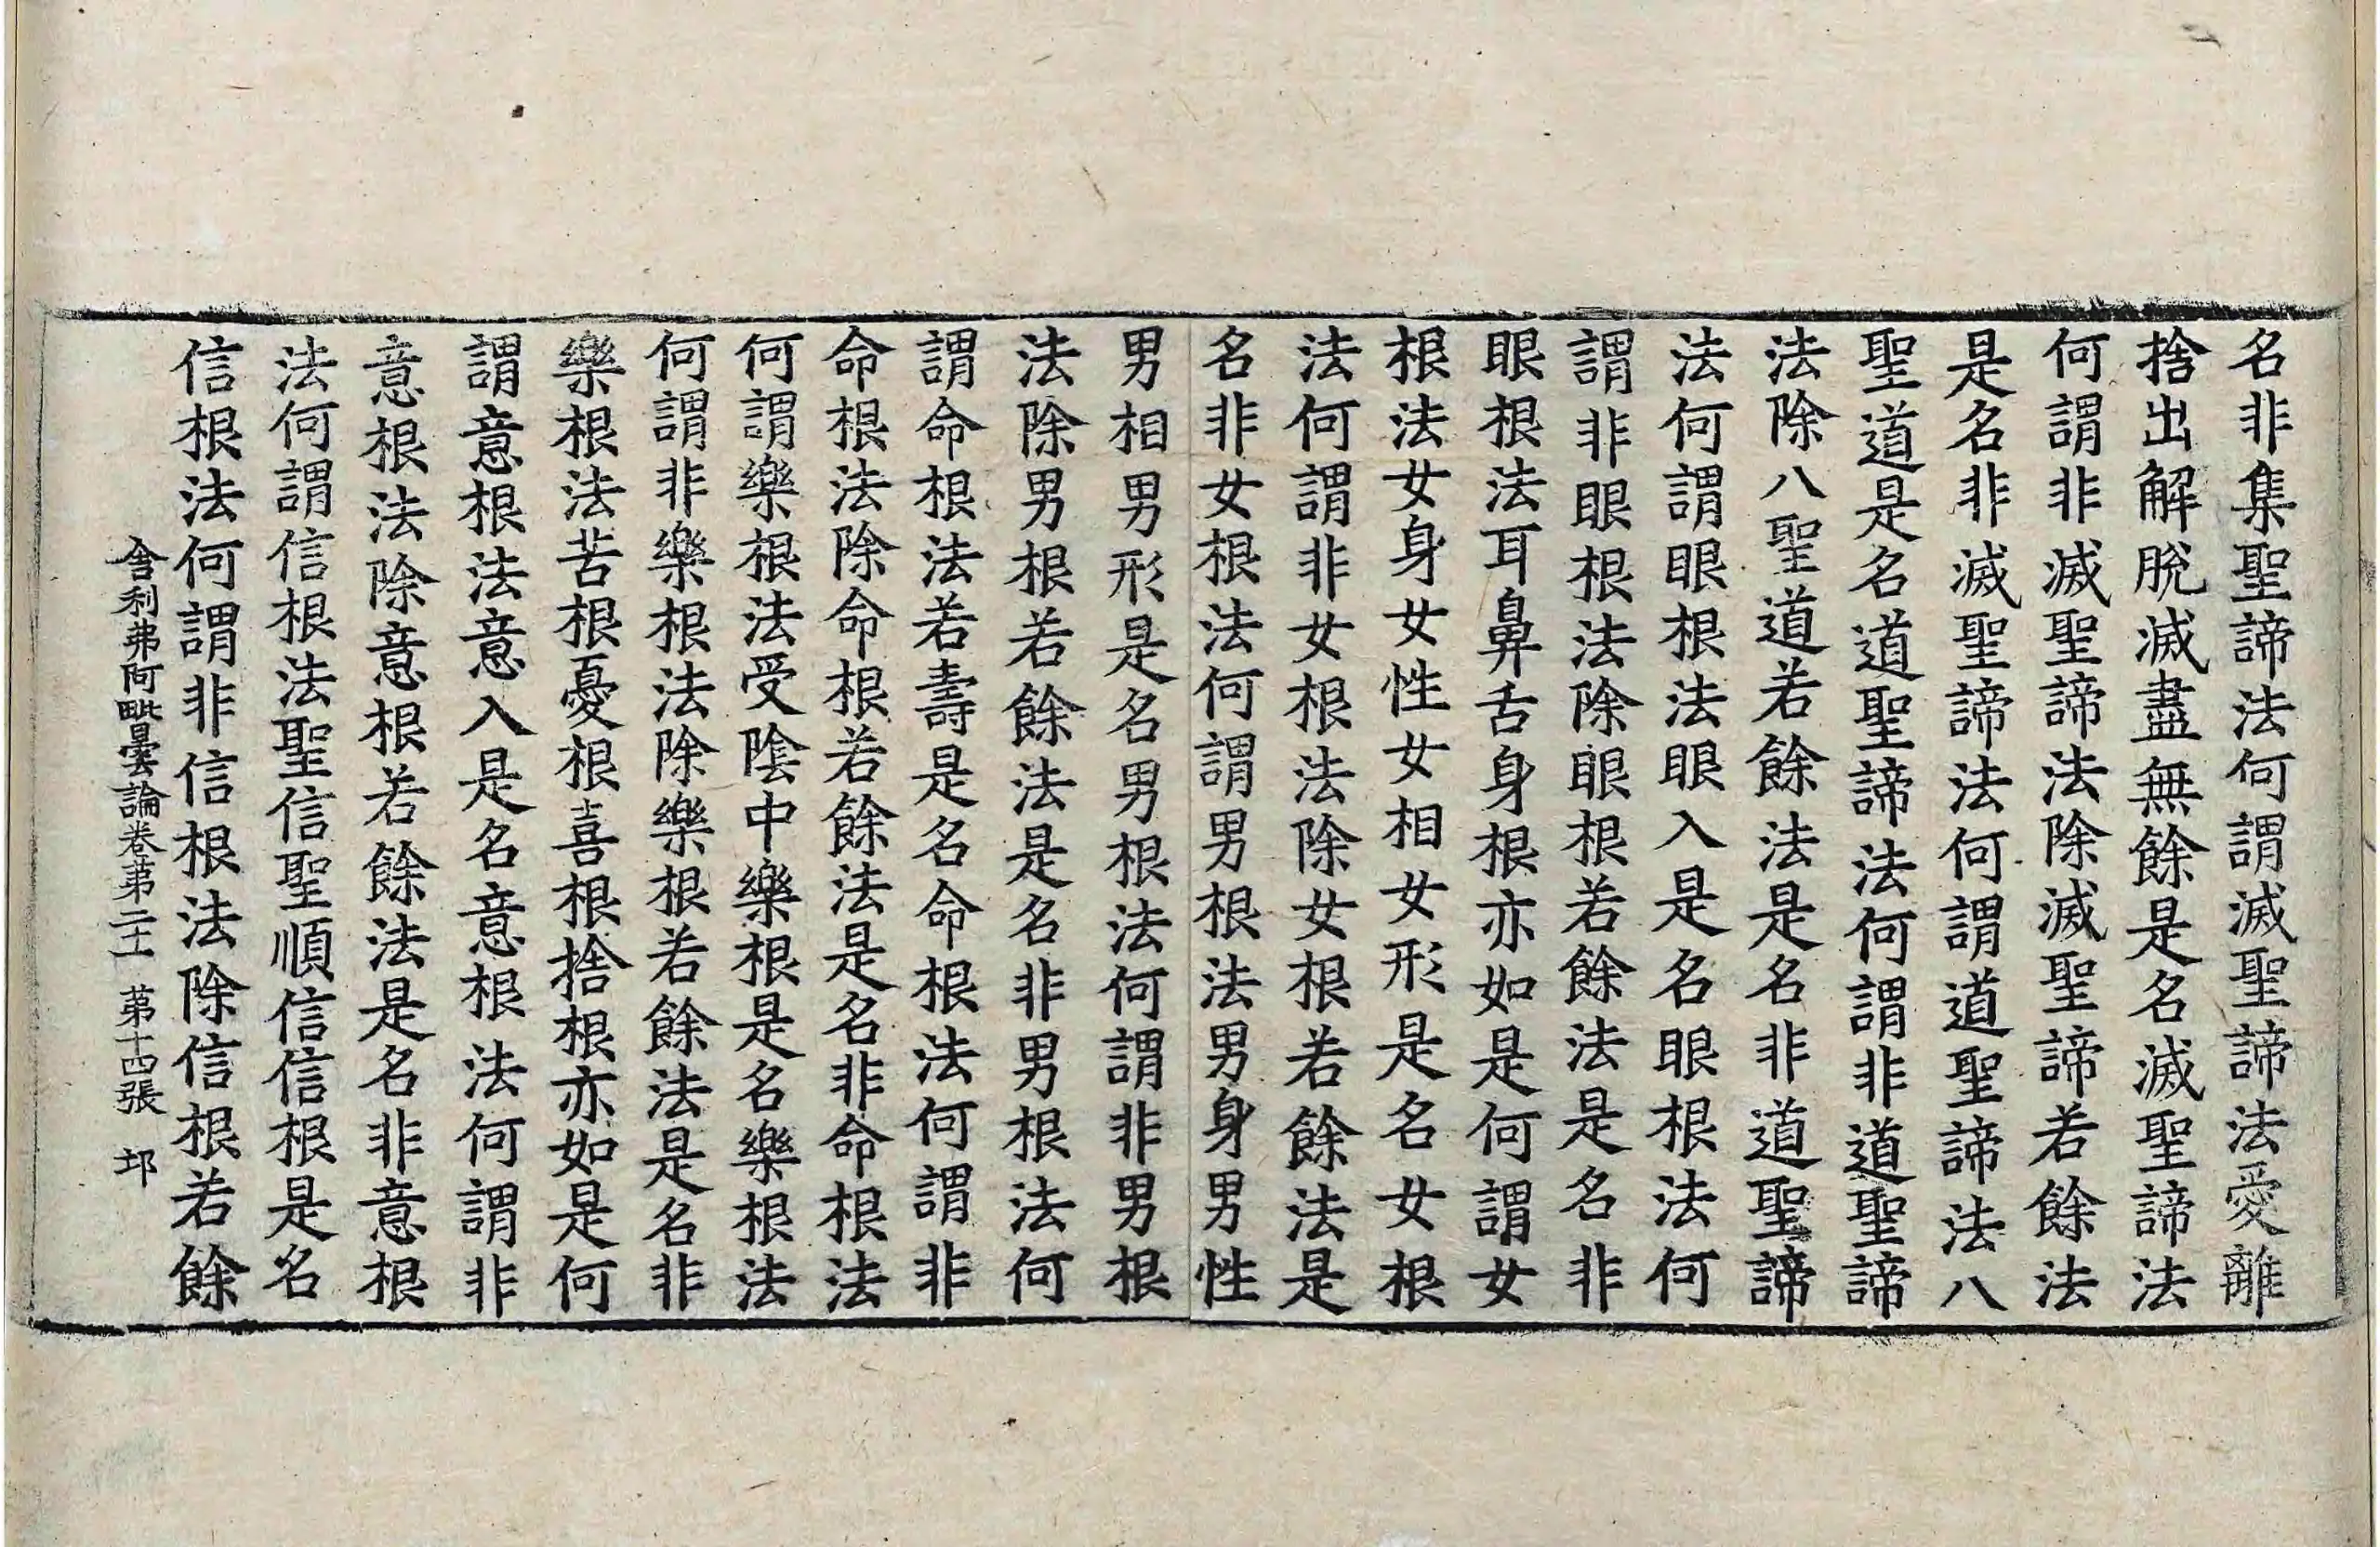 名非集聖諦法何謂滅聖諦法愛離
捨出解脫滅盡無餘是名滅聖諦法
何謂非滅聖諦法除滅聖諦若餘法
是名非滅聖諦法何謂道聖諦法八
聖道是名道聖諦法何謂非道聖諦
法除八聖道若餘法是名非道聖諦
法何謂眼根法眼入是名眼根法何
謂非眼根法除眼根若餘法是名非
眼根法耳鼻舌身根亦如是何謂女
根法女身女性女相女形是名女根
法何謂非女根法除女根若餘法是
名非女根法何謂男根法男身男性
男相男形是名男根法何謂非男根
法除男根若餘法是名非男根法何
謂命根法若壽是名命根法何謂非
命根法除命根若餘法是名非命根法
何謂樂根法受陰中樂根是名樂根法
何謂非樂根法除樂根若餘法是名非
樂根法苦根憂根喜根捨根亦如是何
謂意根法意入是名意根法何謂非
意根法除意根若餘法是名非意根
法何謂信根法聖信聖順信信根是名
信根法何謂非信根法除信根若餘
舍利弗阿毗曇論卷第二十一 第十四張 𨚗